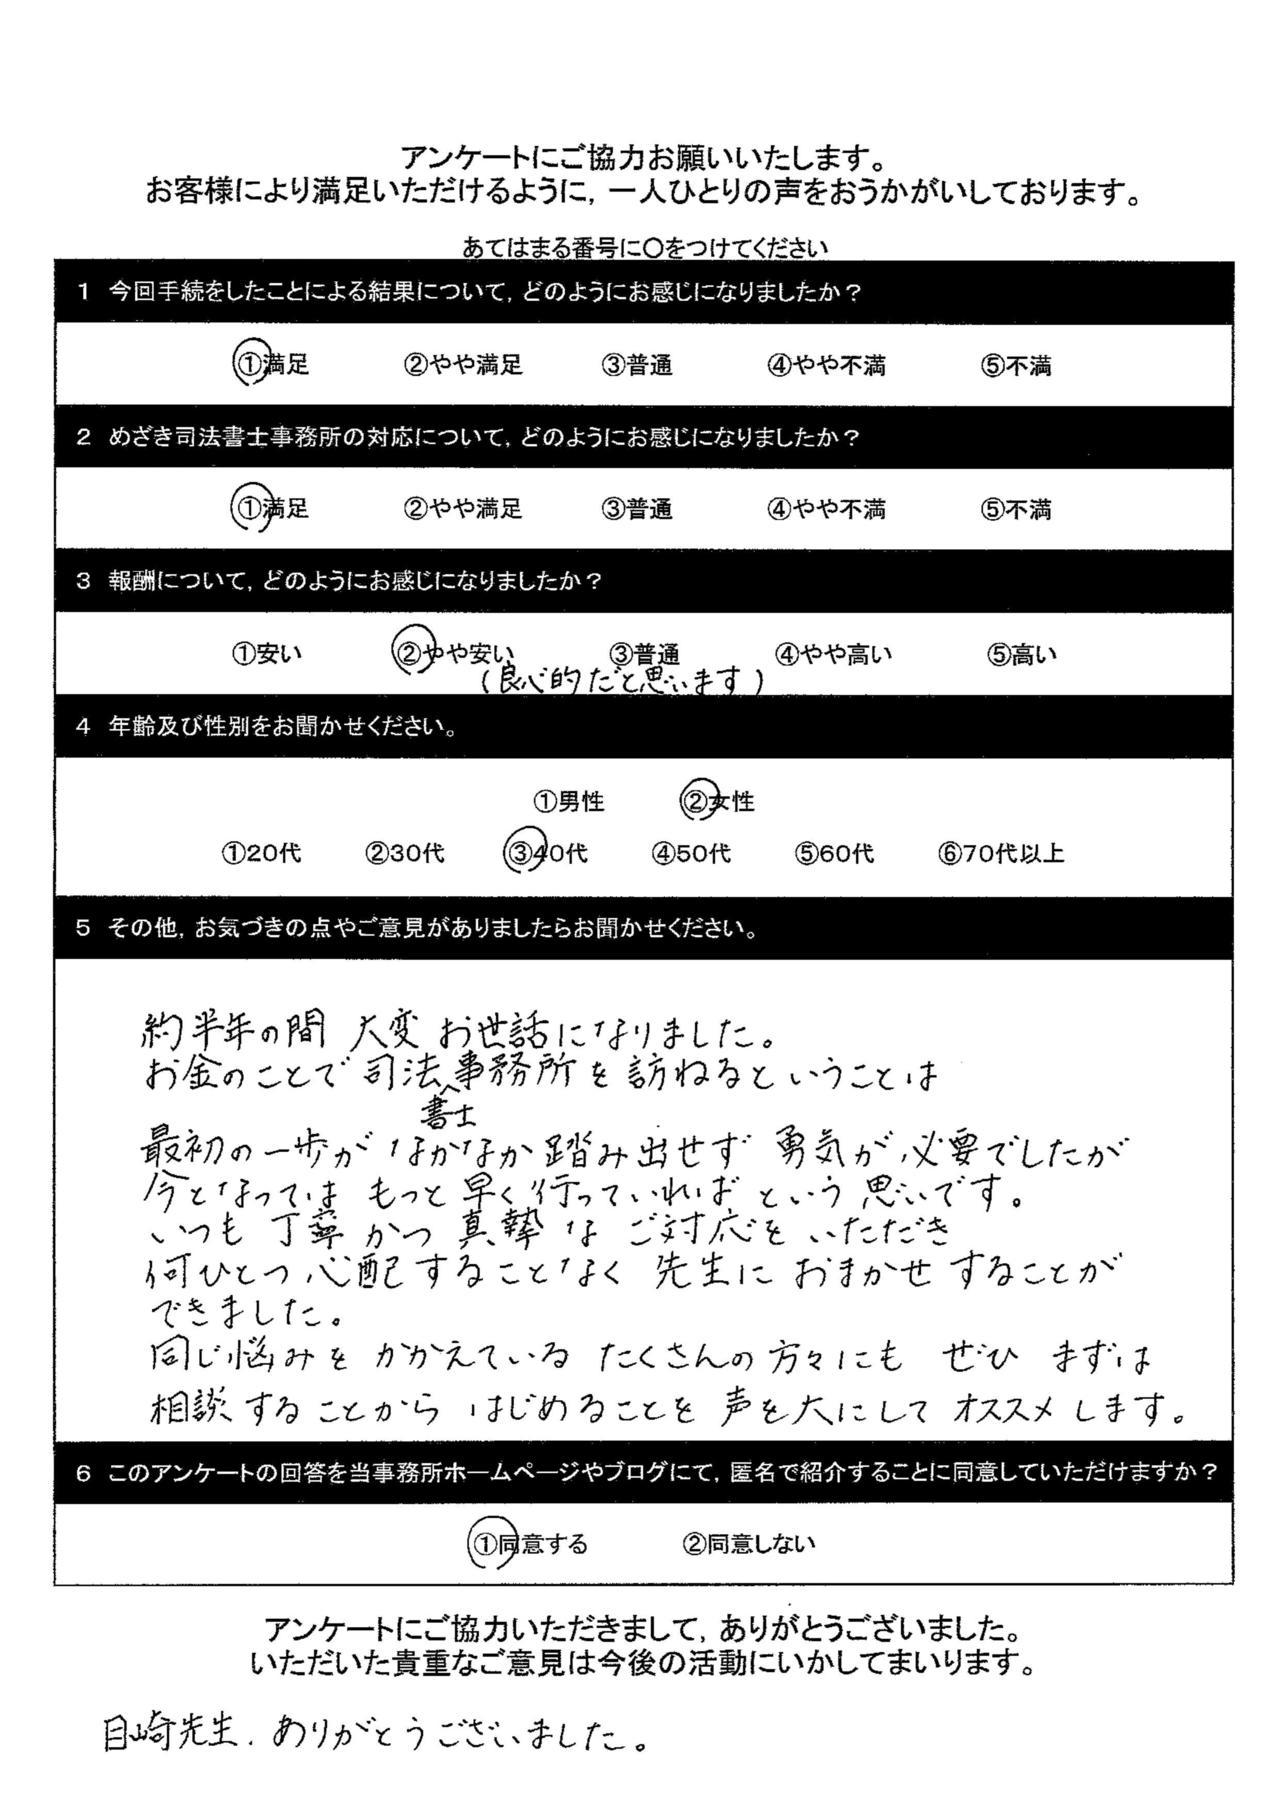 アンケートにご協力お願いいたします。
お客様により満足いただけるように，一人ひとりの声をおうかがいしております。
あてはまる番号に〇をつけてください
1 今回手続をしたことによる結果について，どのようにお感じになりましたか？
①満足 ②やや満足 ③普通 ④やや不満 ⑤不満
2 めざき司法書士事務所の対応について，どのようにお感じになりましたか？
①満足 ②やや満足 ③普通 ④やや不満 ⑤不満
3 報酬について，どのようにお感じになりましたか？
①安い ②やや安い ③普通 ④やや高い ⑤高い
(良心的だと思います)
4 年齢及び性別をお聞かせください。
①男性 ②女性
①20代 ②30代 ③40代 ④50代 ⑤60代 ⑥70代以上
5 その他，お気づきの点やご意見がありましたらお聞かせください。
約半年の間 大変 お世話になりました。
お金のことで 司法事務所を訪ねるということは
書士
最初の一歩が なかなか踏み出せず 勇気が必要でしたが
今となっては もっと早く行っていればという思いです。
いつも 丁寧かつ 真摯な ご対応をいただき
何ひとつ心配することなく 先生におまかせすることが
できました。
同じ悩みを かかえている たくさんの方々にも ぜひ まずは
相談することから はじめることを 声を大にして オススメします。
6 このアンケートの回答を当事務所ホームページやブログにて，匿名で紹介することに同意していただけますか？
①同意する ②同意しない
アンケートにご協力いただきまして，ありがとうございました。
いただいた貴重なご意見は今後の活動にいかしてまいります。
目崎先生. ありがとうございました。